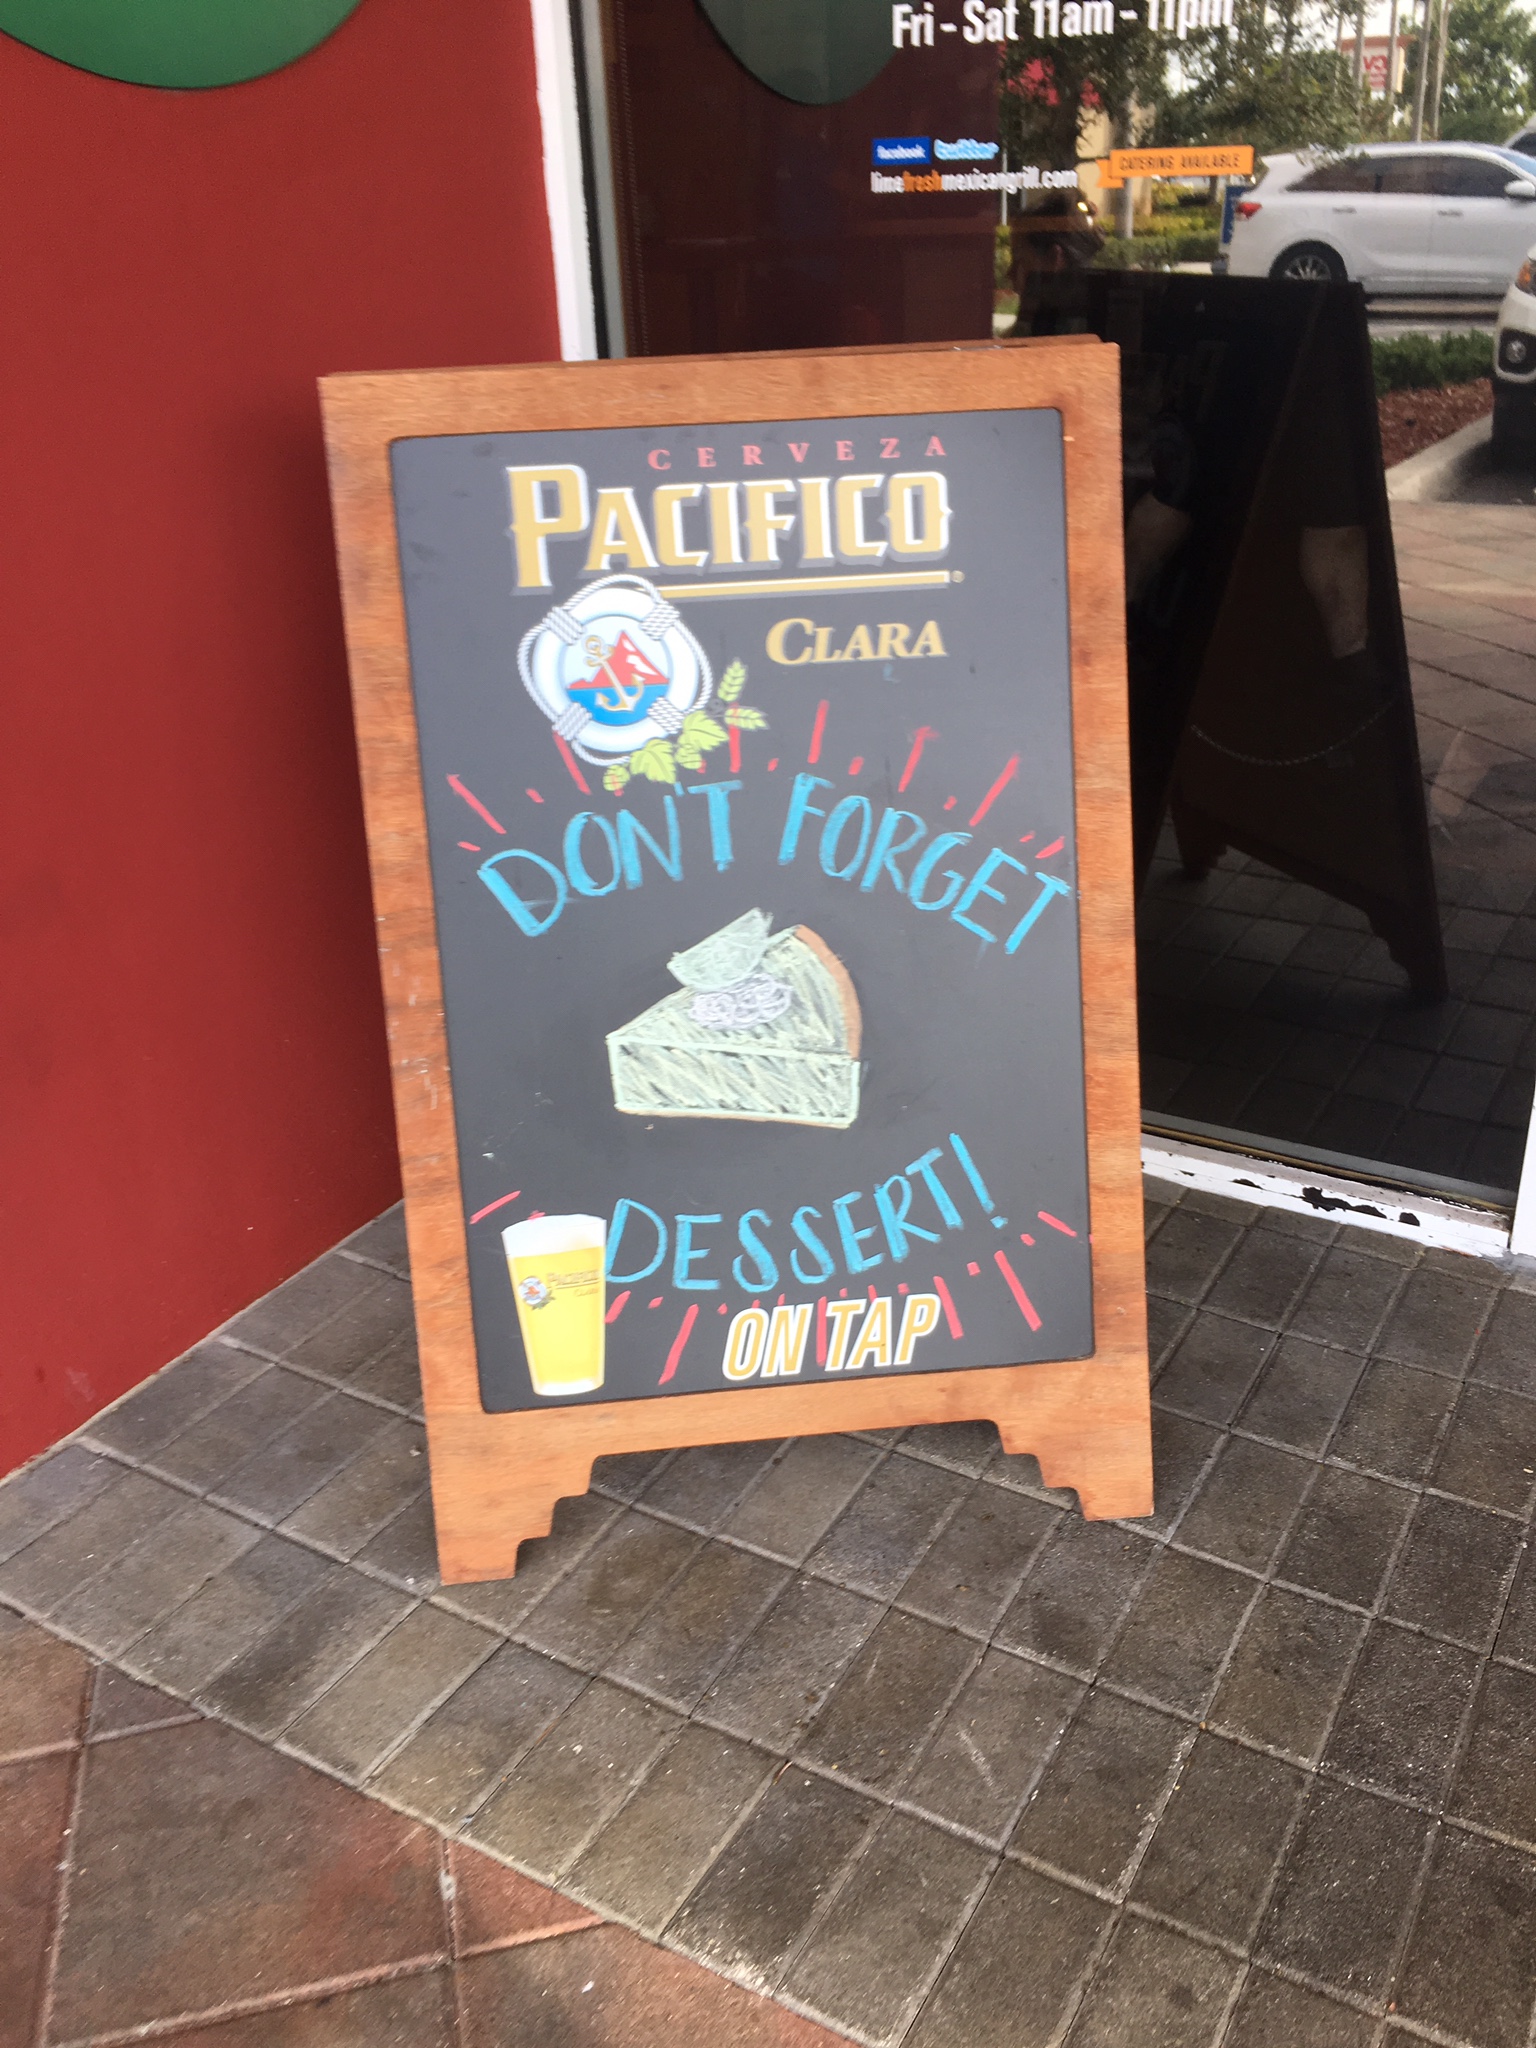 Fri - Sat 11am - 11pm
facebook twitter
limefreshmexicangrill.com
CATERING AVAILABLE
CERVEZA
PACIFICO
CLARA
DON'T FORGET
DESSERT!
PACIFICO
CLARA
ON TAP